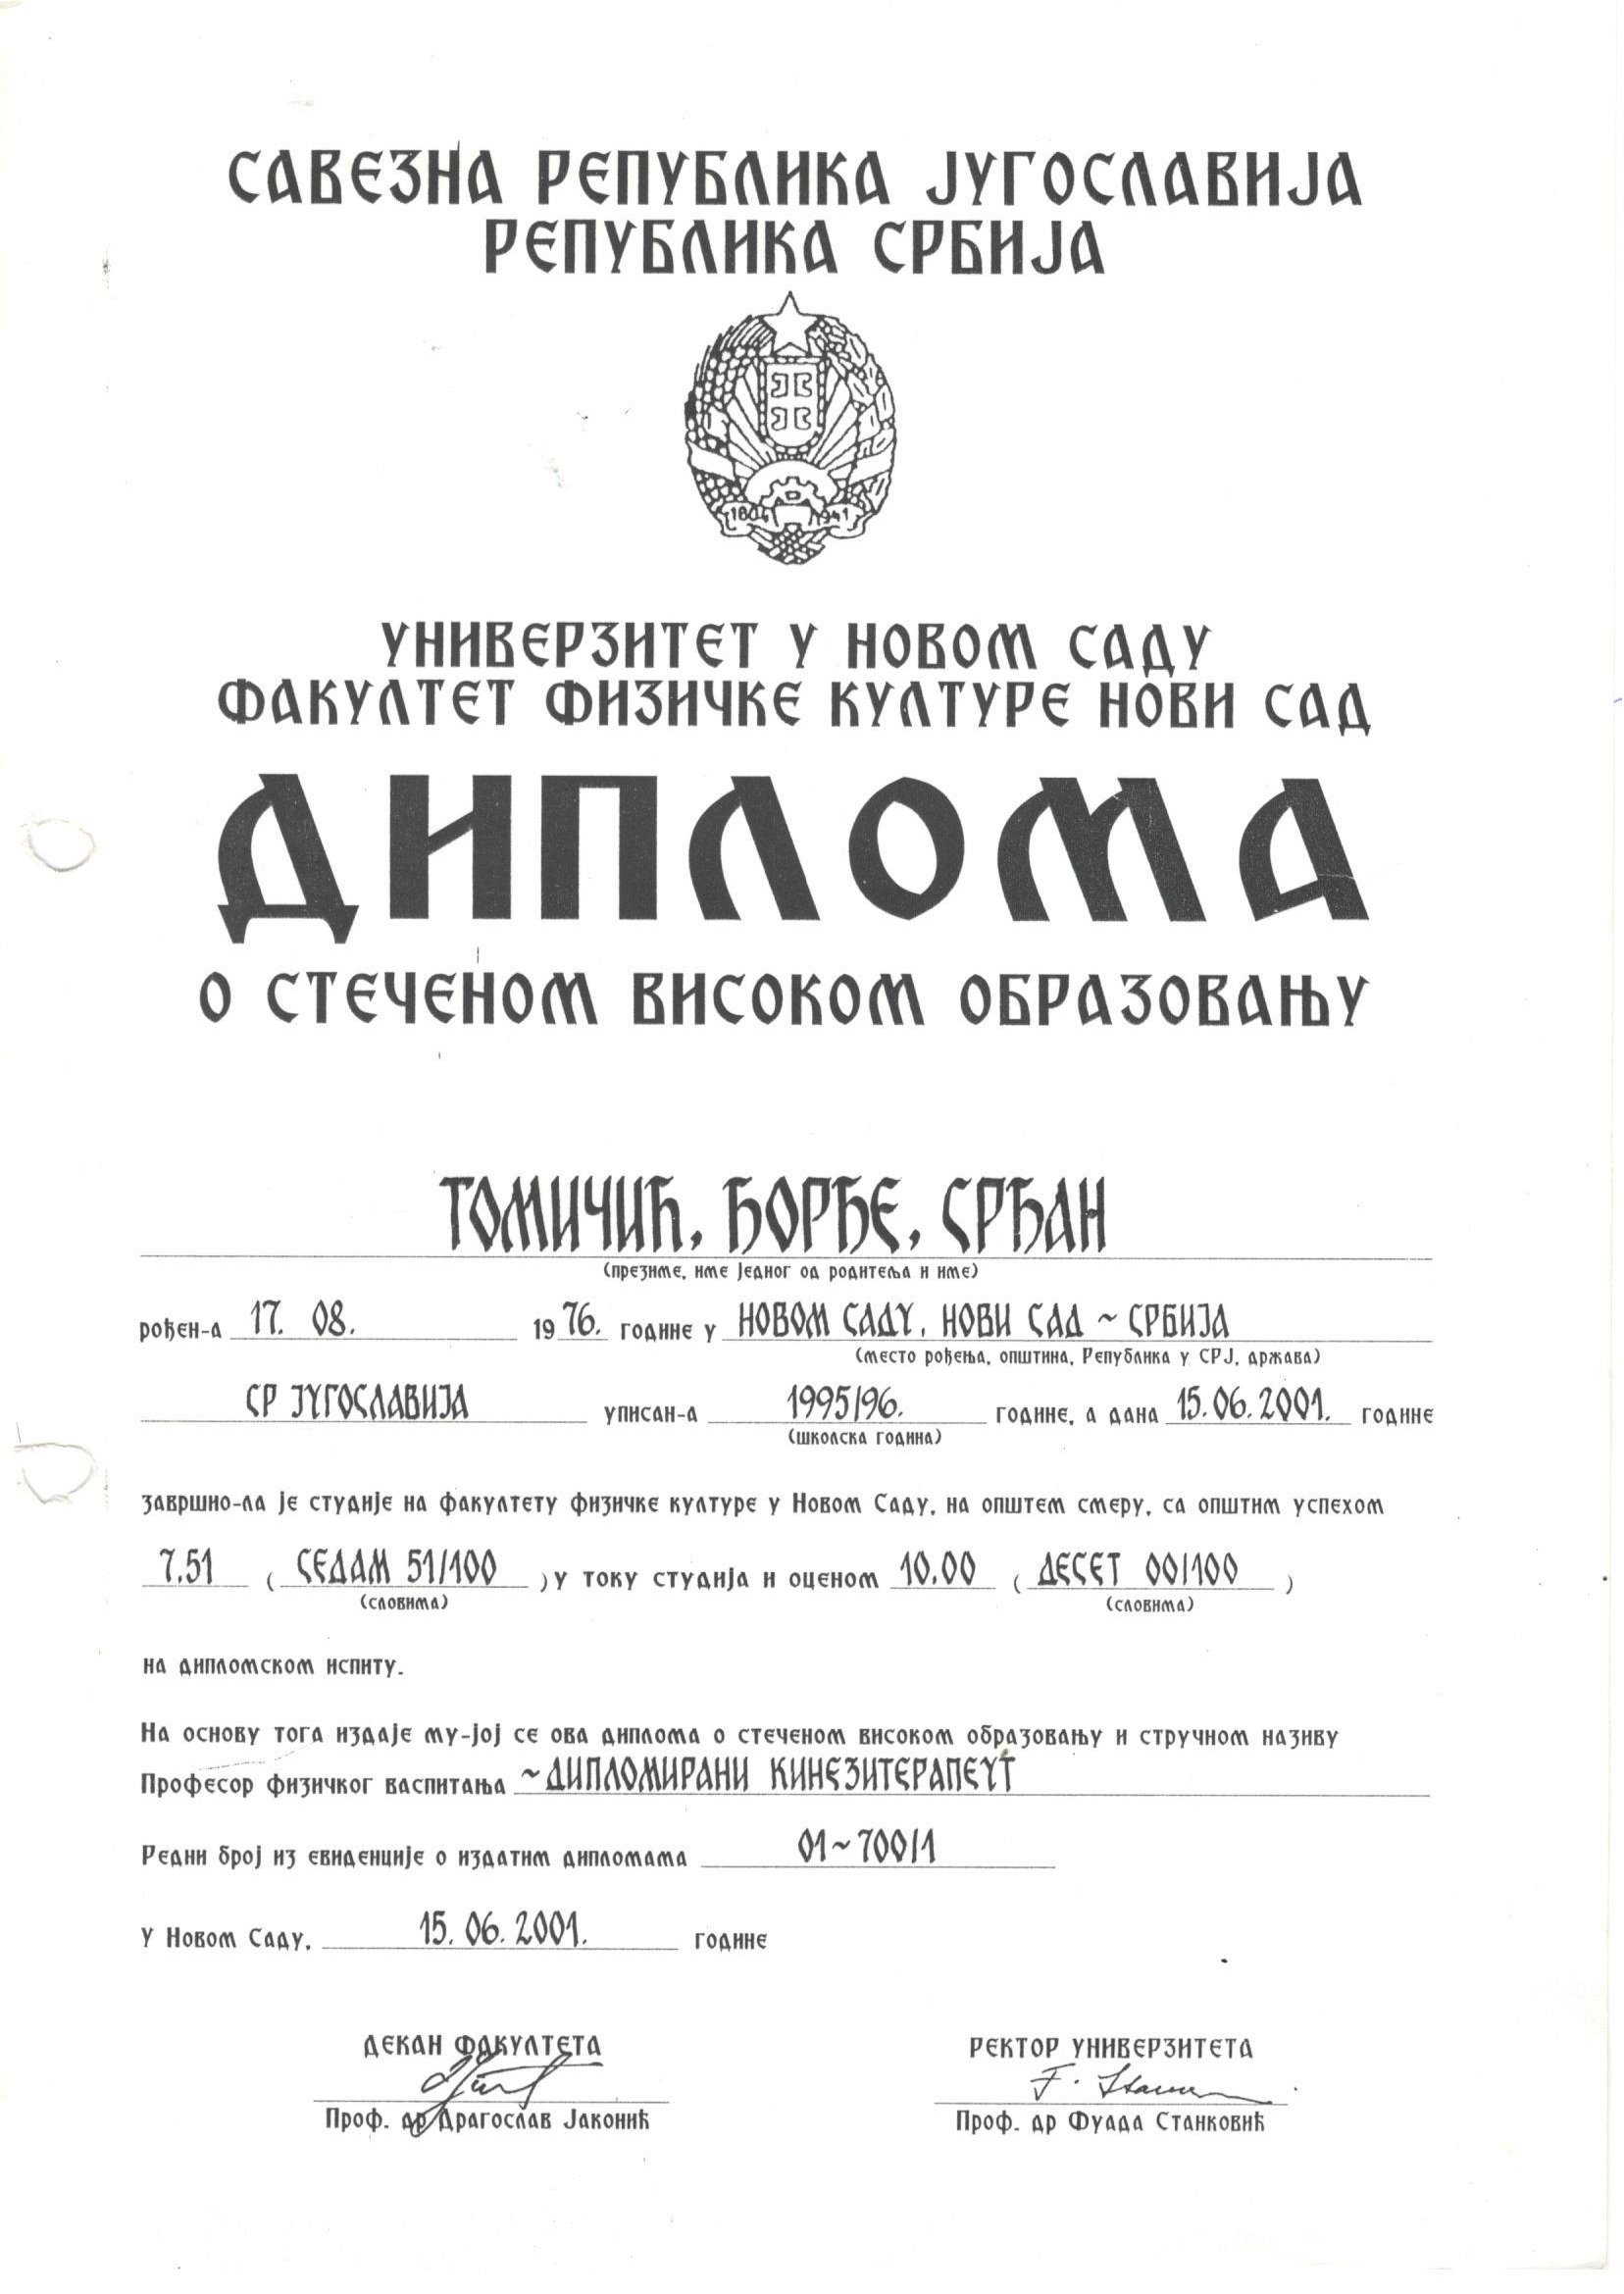 САВЕЗНА РЕПУБЛИКА ЈУГОСЛАВИЈА
РЕПУБЛИКА СРБИЈА
1804 1941
УНИВЕРЗИТЕТ У НОВОМ САДУ
ФАКУЛТЕТ ФИЗИЧКЕ КУЛТУРЕ НОВИ САД
ДИПЛОМА
О СТЕЧЕНОМ ВИСОКОМ ОБРАЗОВАЊУ
ТОМИЧИЋ, ЂОРЂЕ, СРЂАН
(презиме, име једног од родитеља и име)
рођен-а 17. 08. 1976. године у НОВОМ САДУ, НОВИ САД ~ СРБИЈА
(место рођења, општина, Република у СРЈ, држава)
СР ЈУГОСЛАВИЈА уписан-а 1995/96. године, а дана 15.06.2001. године
(школска година)
завршио-ла је студије на факултету физичке културе у Новом Саду, на општем смеру, са општим успехом
7.51 ( СЕДАМ 51/100 ) у току студија и оценом 10.00 ( ДЕСЕТ 00/100 )
(словима) (словима)
на дипломском испиту.
На основу тога издаје му-јој се ова диплома о стеченом високом образовању и стручном називу
Професор физичког васпитања ~ДИПЛОМИРАНИ КИНЕЗИТЕРАПЕУТ
Редни број из евиденције о издатим дипломама 01~700/1
У Новом Саду, 15. 06. 2001. године
ДЕКАН ФАКУЛТЕТА РЕКТОР УНИВЕРЗИТЕТА
Проф. др Драгослав Јаконић Проф. др Фуада Станковић